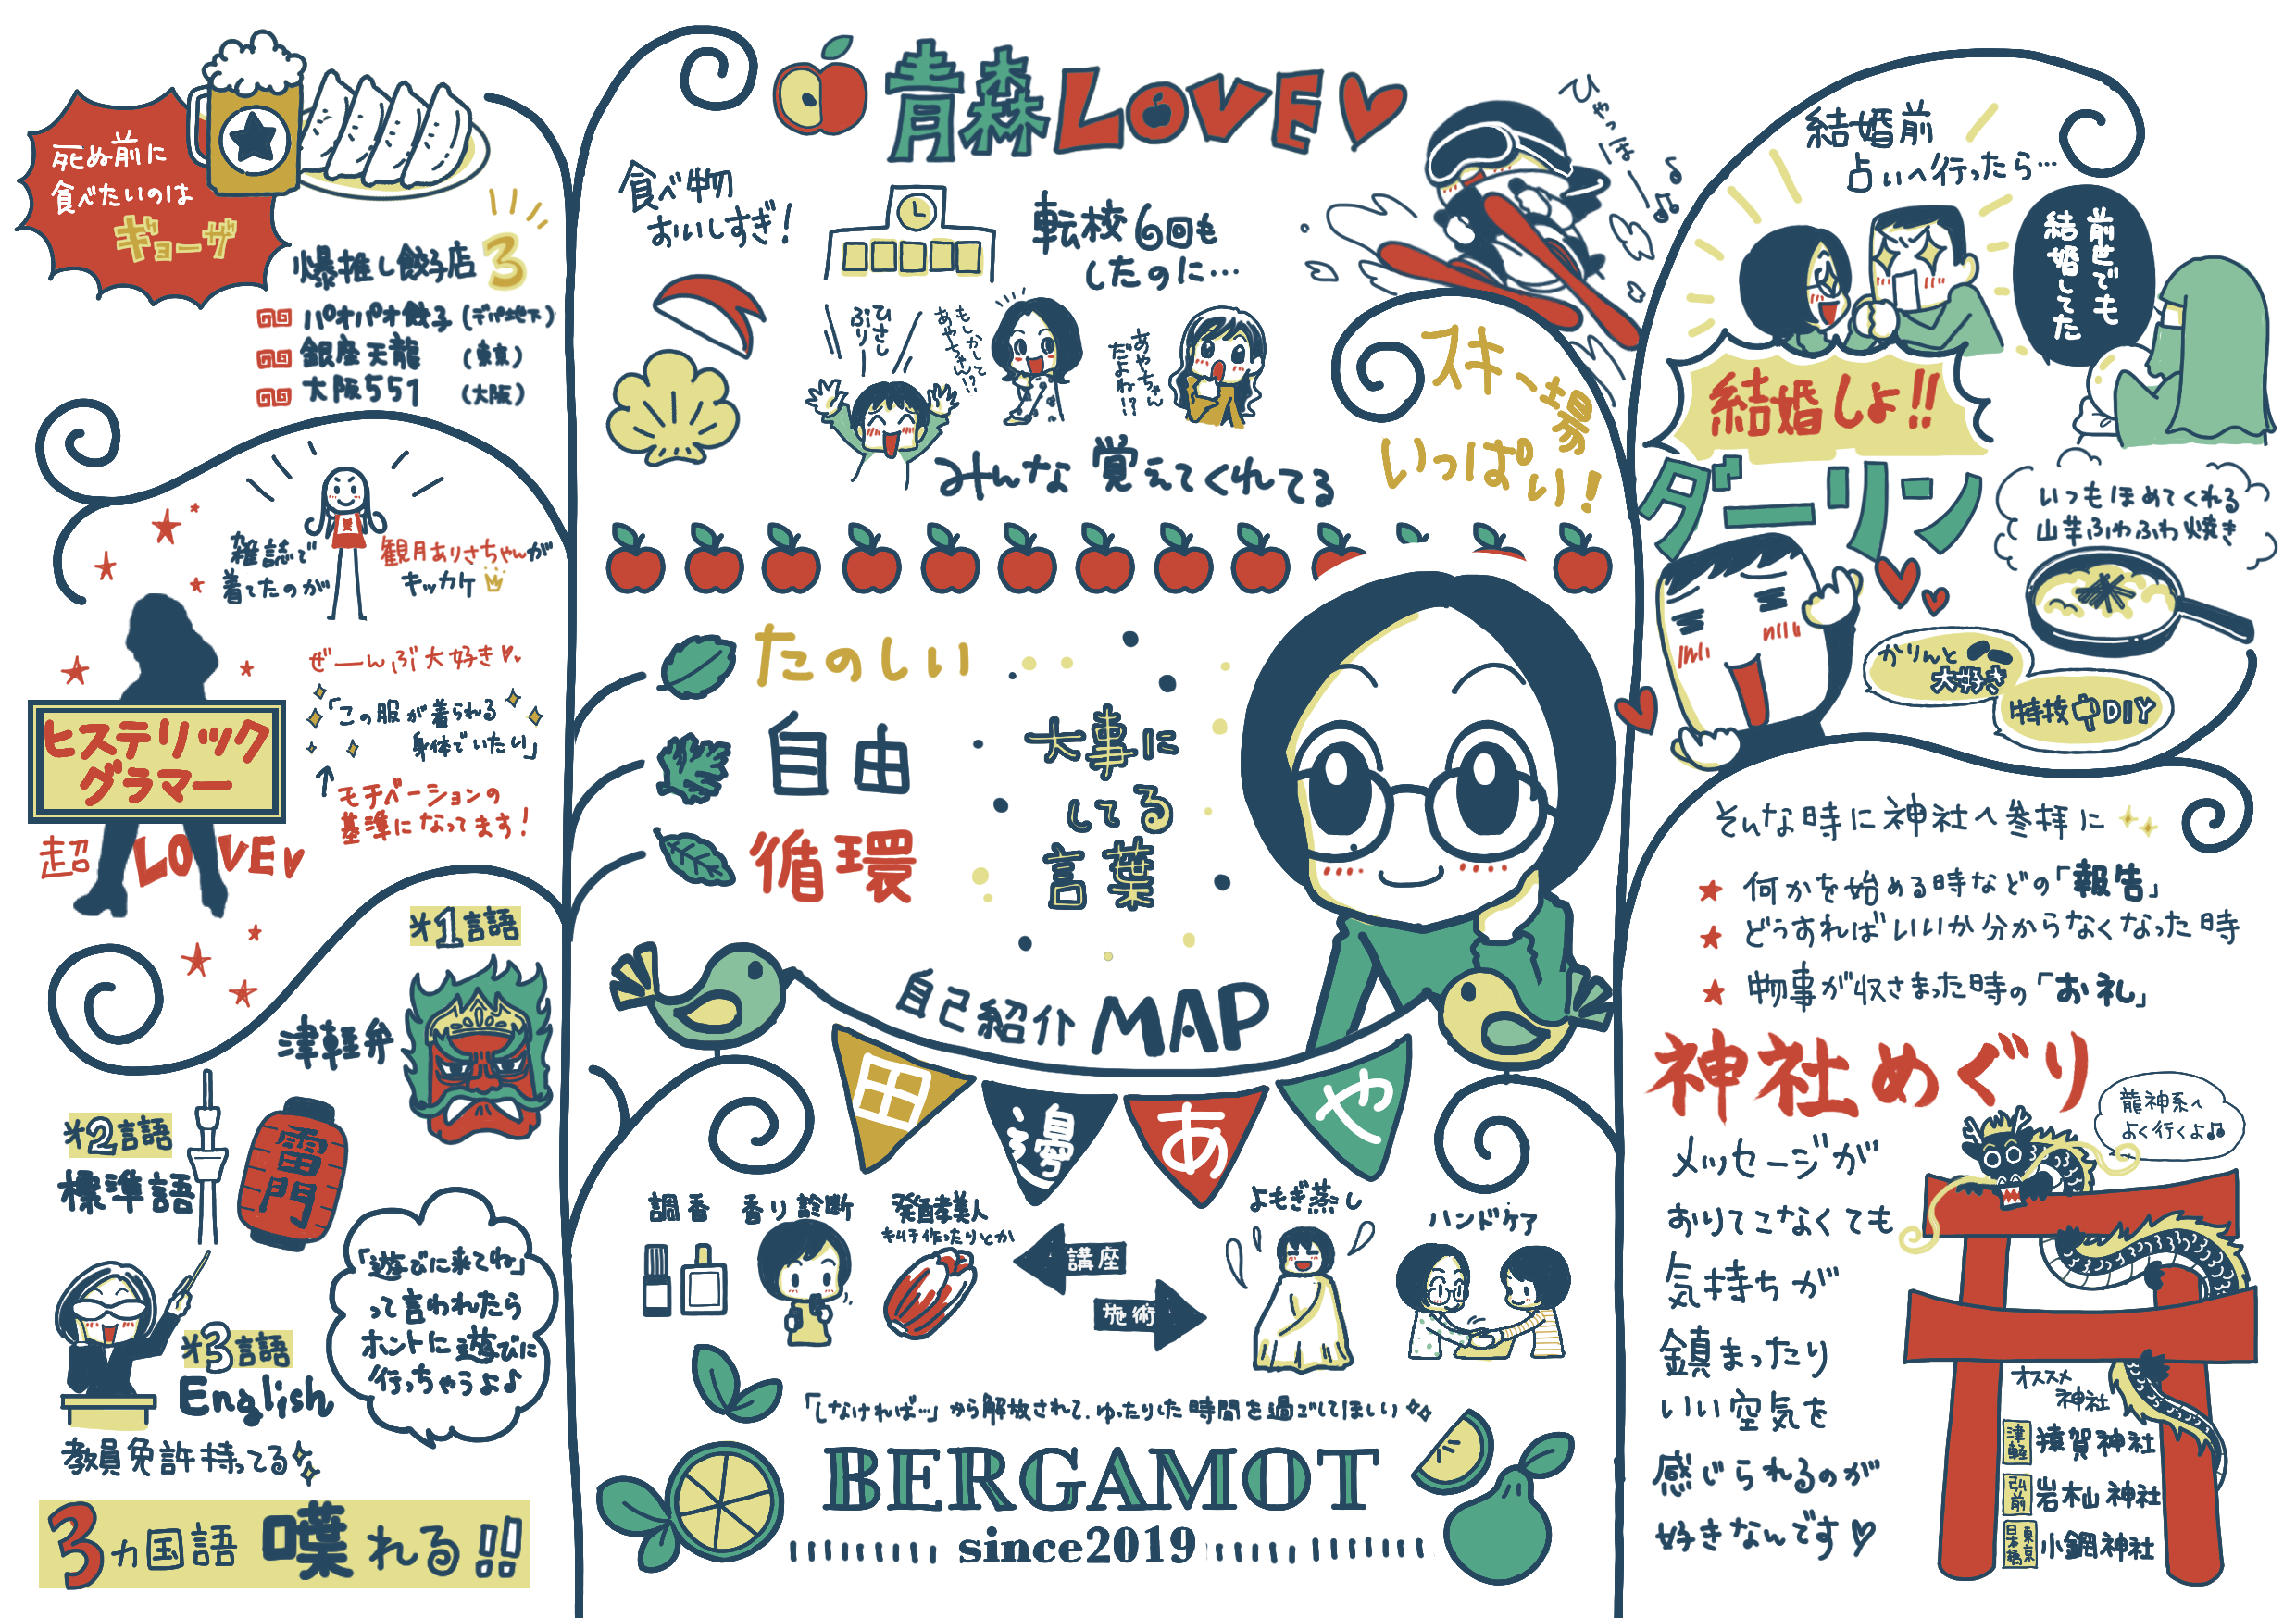 死ぬ前に
食べたいのは
ギョーザ
爆推し餃子店3
パオパオ餃子(デパ地下)
銀座天龍(東京)
大阪551(大阪)
雑誌で
着てたのが
観月ありさちゃんが
キッカケ
ぜーんぶ大好き♥
「この服が着られる
身体でいたい」
↑
モチベーションの
基準になってます!
ヒステリック
グラマー
超LOVE♥
オ1言語
津軽弁
オ2言語
標準語
雷門
オ3言語
English
教員免許持ってる
「遊びに来てね」
って言われたら
ホントに遊びに
行っちゃうよ♪
3ヵ国語喋れる!!
青森LOVE♥
食べ物
おいしすぎ!
転校6回も
したのに…
ひさし
ぶりー
もしかして
あやちゃん!?
あやちゃん
だよね!?
みんな覚えてくれてる
ひゃっほー♪♫
スキー場
いっぱい!
たのしい
自由
循環
大事に
してる
言葉
自己紹介MAP
田邊あや
調香
香り診断
発酵美人
キムチ作ったりとか
講座
施術
よもぎ蒸し
ハンドケア
「しなければ…」から解放されて、ゆったりした時間を過ごしてほしい
BERGAMOT
since2019
結婚前
占いへ行ったら…
前世でも
結婚してた
結婚しよ!!
ダーリン
いつもほめてくれる
山芋ふわふわ焼き
かりんと
大好き
特技DIY
そんな時に神社へ参拝に
★何かを始める時などの「報告」
★どうすればいいか分からなくなった時
★物事が収さまった時の「お礼」
神社めぐり
龍神系へ
よく行くよ♫
メッセージが
おりてこなくても
気持ちが
鎮まったり
いい空気を
感じられるのが
好きなんです♡
オススメ
神社
津軽 猿賀神社
弘前 岩木山神社
東京日本橋 小網神社